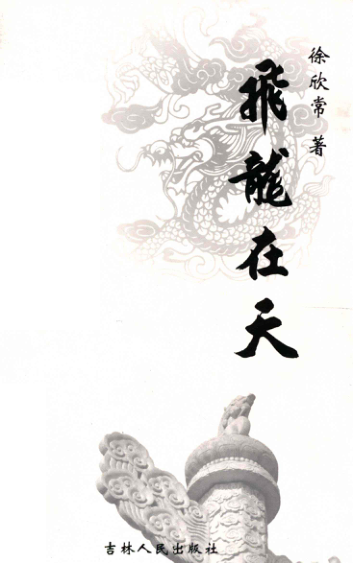 徐欣常 著
飛龍在天
吉林人民出版社